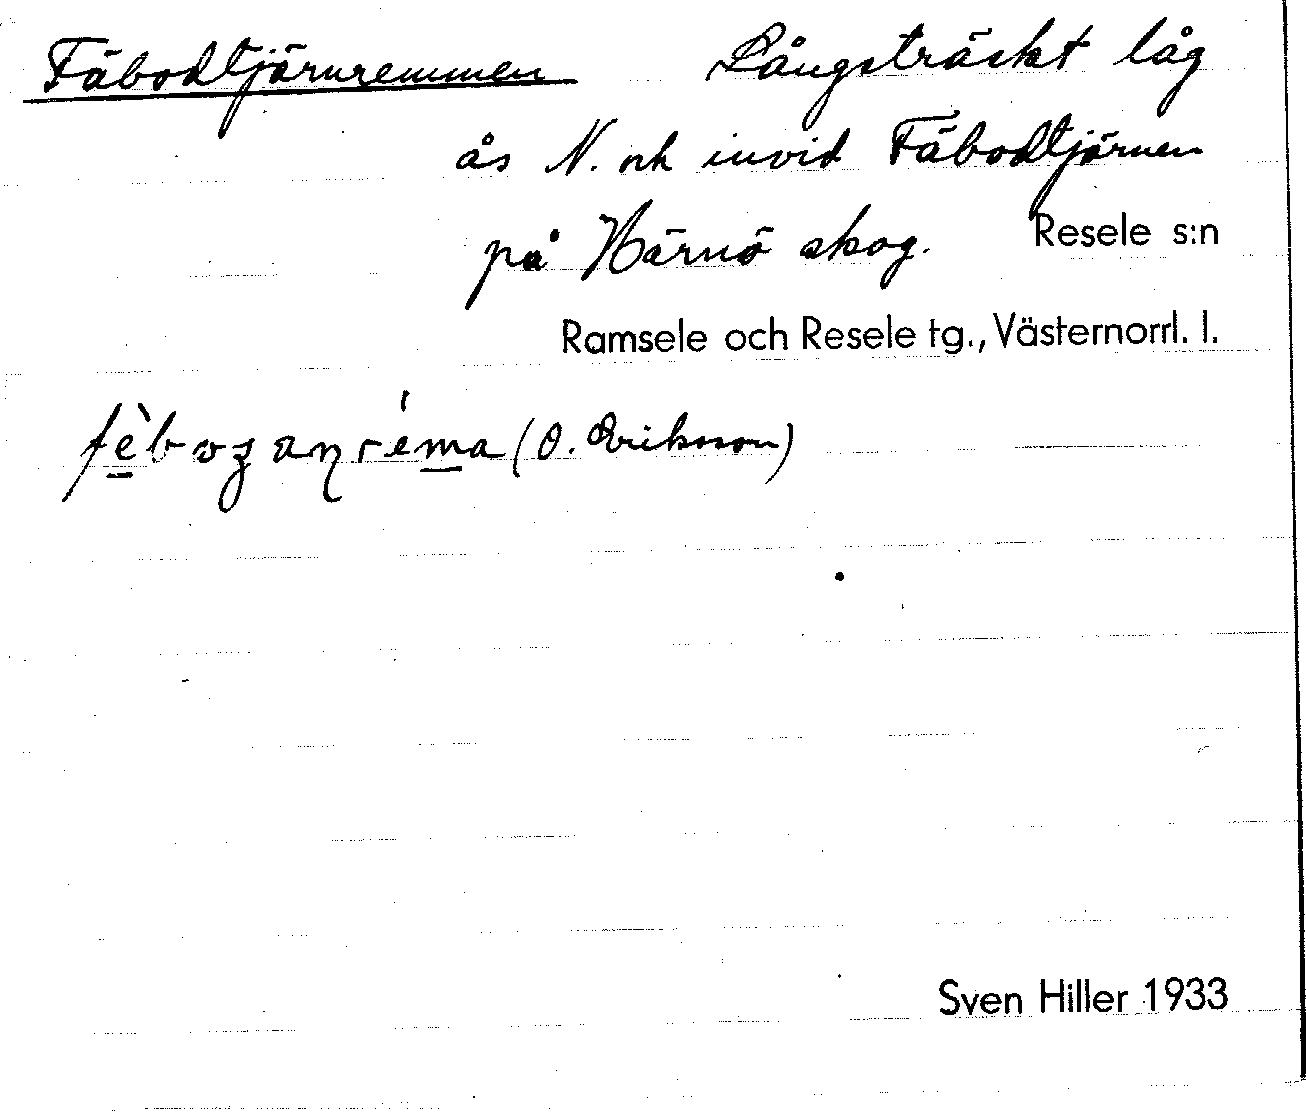 Fäbodtjärnremmen Långsträckt låg
ås N. och invid Fäbodtjärnen
på Härnö skog. Resele s:n
Ramsele och Resele tg., Västernorrl. l.
(O. Eriksson)
Sven Hiller 1933